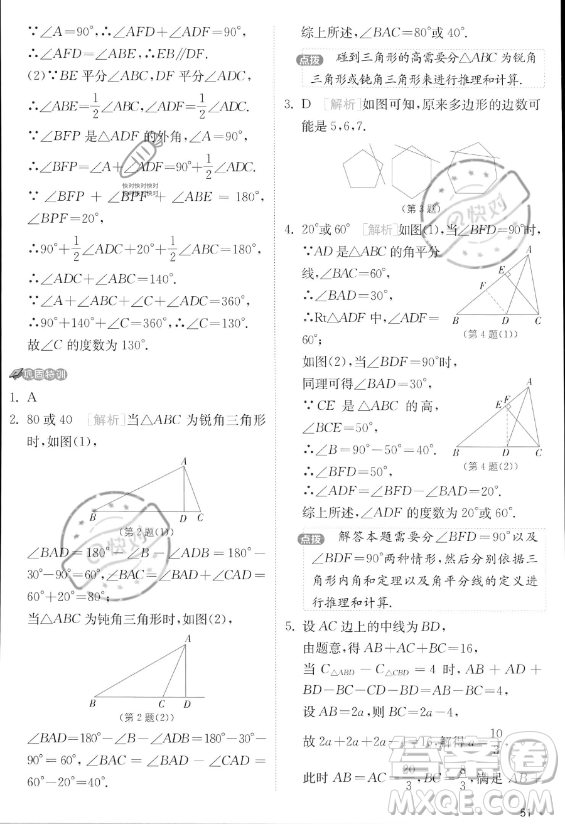 ∵∠A=90°,∴∠ADF+∠AFD=90°,
∴∠AFD=∠ABE,∴EB∥DF.
(2)∵BE平分∠ABC,DF平分∠ADC,
∴∠ABE=1/2∠ABC,∠ADF=1/2∠ADC.
∵∠BFP是△ADF的外角,∠A=90°,
∴∠BFP=∠A+∠ADF=90°+1/2∠ADC.
∵∠BFP+∠BPF+∠ABE=180°,
∠BPF=20°,
∴90°+1/2∠ADC+20°+1/2∠ABC=180°,
∴∠ADC+∠ABC=140°.
∵∠A+∠ABC+∠C+∠ADC=360°,
∴90°+140°+∠C=360°,∴∠C=130°.
故∠C的度数为130°.
巩固特训
1. A
2. 80或40 [解析]当△ABC为锐角三角形
时,如图(1),
A
B D C
(第2题(1))
∠BAD=180°-∠B-∠ADB=180°-
30°-90°=60°,∠BAC=∠BAD+∠CAD=
60°+20°=80°;
当△ABC为钝角三角形时,如图(2),
A
B C D
(第2题(2))
∠BAD=180°-∠B-∠ADB=180°-
30°-90°=60°,∠BAC=∠BAD-∠CAD=
60°-20°=40°.
综上所述,∠BAC=80°或40°.
点拨 碰到三角形的高需要分△ABC为锐角
三角形或钝角三角形来进行推理和计算.
3. D [解析]如图可知,原来多边形的边数可
能是5,6,7.
(第3题)
4. 20°或60° [解析]如图(1),当∠BFD=90°时,
∵AD是△ABC的角平分
线,∠BAC=60°,
∴∠BAD=30°.
∴Rt△ADF中,∠ADF=
60°;
A
E
F
B D C
(第4题(1))
如图(2),当∠BDF=90°时,
同理可得∠BAD=30°.
∵CE是△ABC的高,
∠BCE=50°,
∴∠B=90°-50°=40°.
∴∠BFD=50°.
A
F
E
B D C
(第4题(2))
∴∠ADF=∠BFD-∠BAD=20°.
综上所述,∠ADF的度数为20°或60°.
点拨 解答本题需要分∠BFD=90°以及
∠BDF=90°两种情形,然后分别依据三
角形内角和定理以及角平分线的定义进
行推理和计算.
5. 设AC边上的中线为BD,
由题意,得AB+AC+BC=16,
当C△ABD-C△CBD=4时,AB+AD+
BD-BC-CD-BD=AB-BC=4.
设AB=2a,则BC=2a-4,
故2a+2a+2a-4=16,解得a=10/3.
此时AB=AC=20/3,BC=8/3,满足AB+
51
快对
答案圈
MXQE.COM